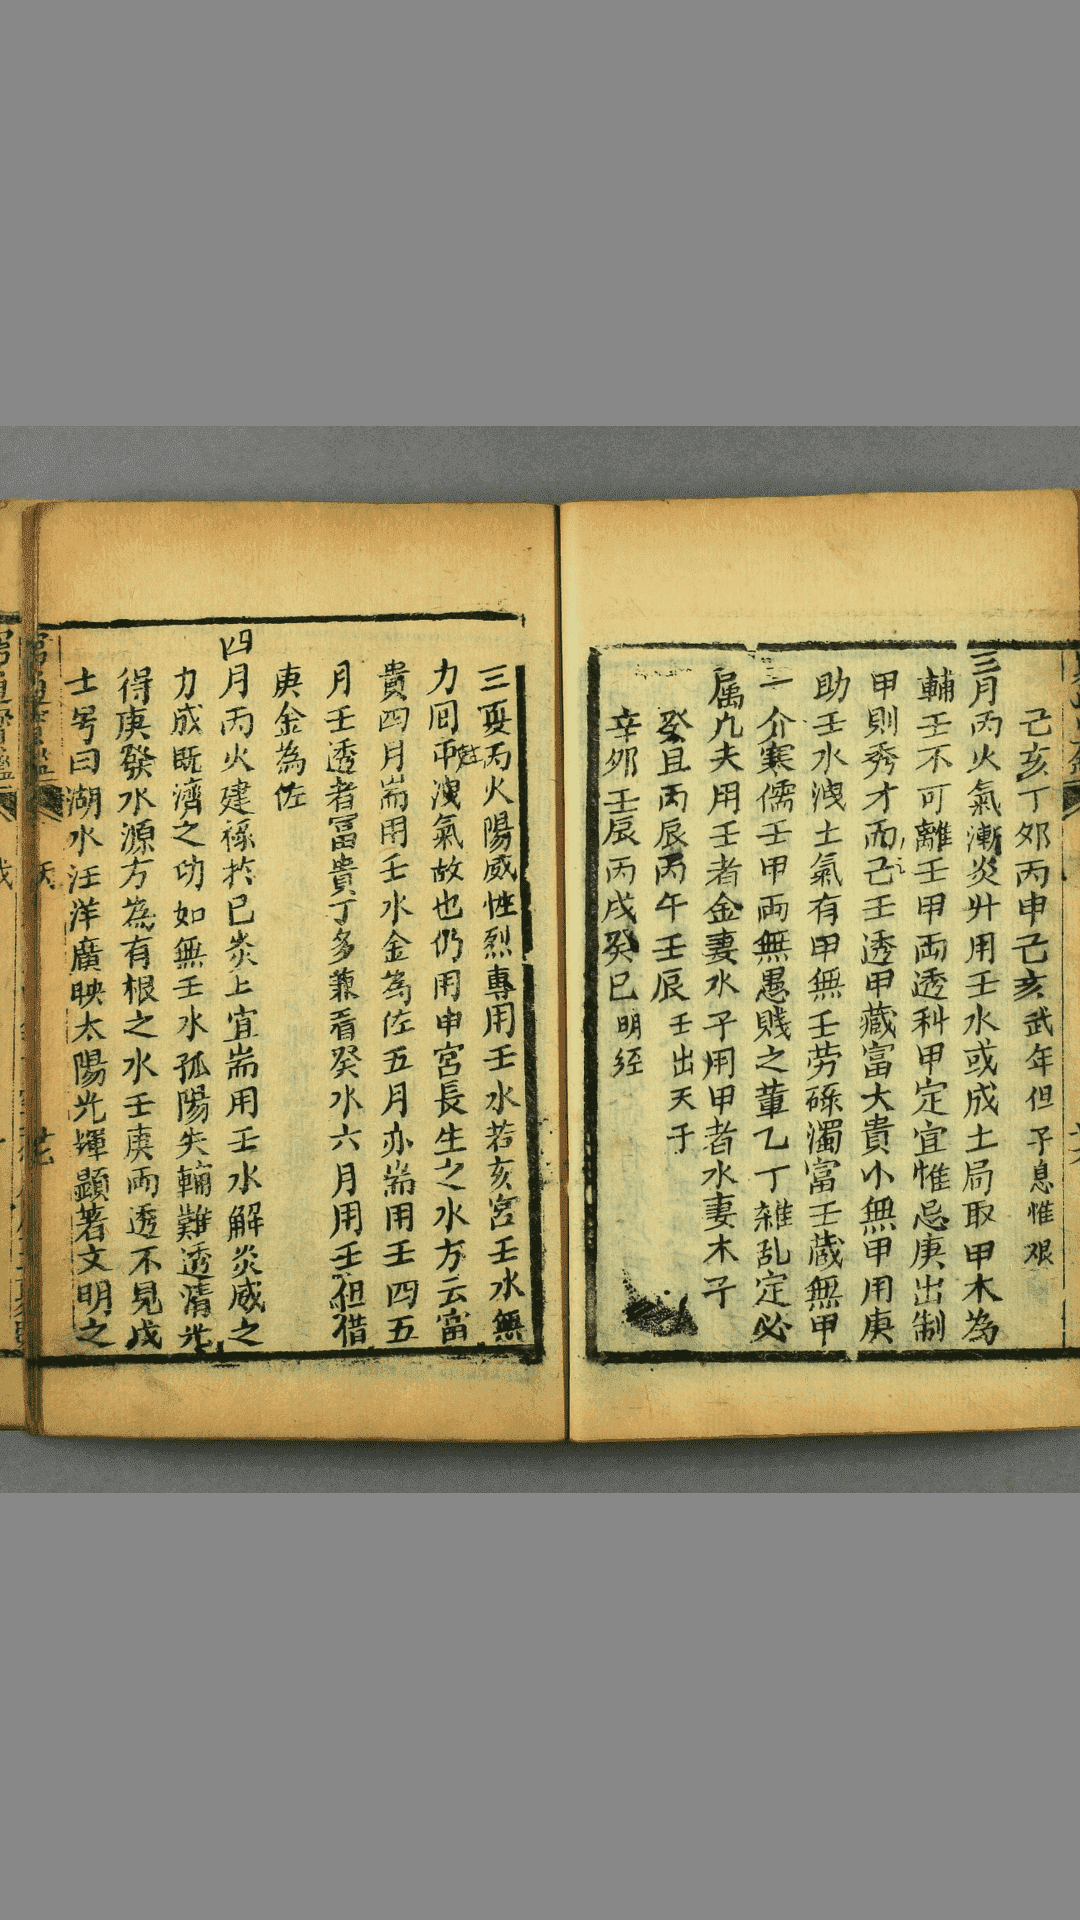 己亥丁夘丙申己亥武年但子息惟艰
三月丙火氣漸炎廾用壬水或成土局取甲木為
輔壬不可離壬甲両透科甲定宜惟忌庚出制
甲則秀才而己壬透甲藏富大貴小無甲用庚
助壬水洩土氣有甲無壬劳碌濁富壬蔵無甲
一介寒儒壬甲両無愚賤之輩乙丁雑乱定必
属九夫用壬者金妻水子用甲者水妻木子
癸丑丙辰丙午壬辰壬出天子
辛夘壬辰丙戌癸巳明経
三夏丙火陽威性烈專用壬水若亥宮壬水無
力回洩氣故也仍用申宮長生之水方云富
貴四月耑用壬水金為佐五月亦耑用壬四五
月壬透者富貴丁多兼看癸水六月用壬但借
庚金為佐
四月丙火建祿於巳炎上宜耑用壬水解炎威之
力成既濟之功如無壬水孤陽失輔難透清光
得庚發水源方為有根之水壬庚両透不見戊
士号曰湖水汪洋廣映太陽光輝顯著文明之